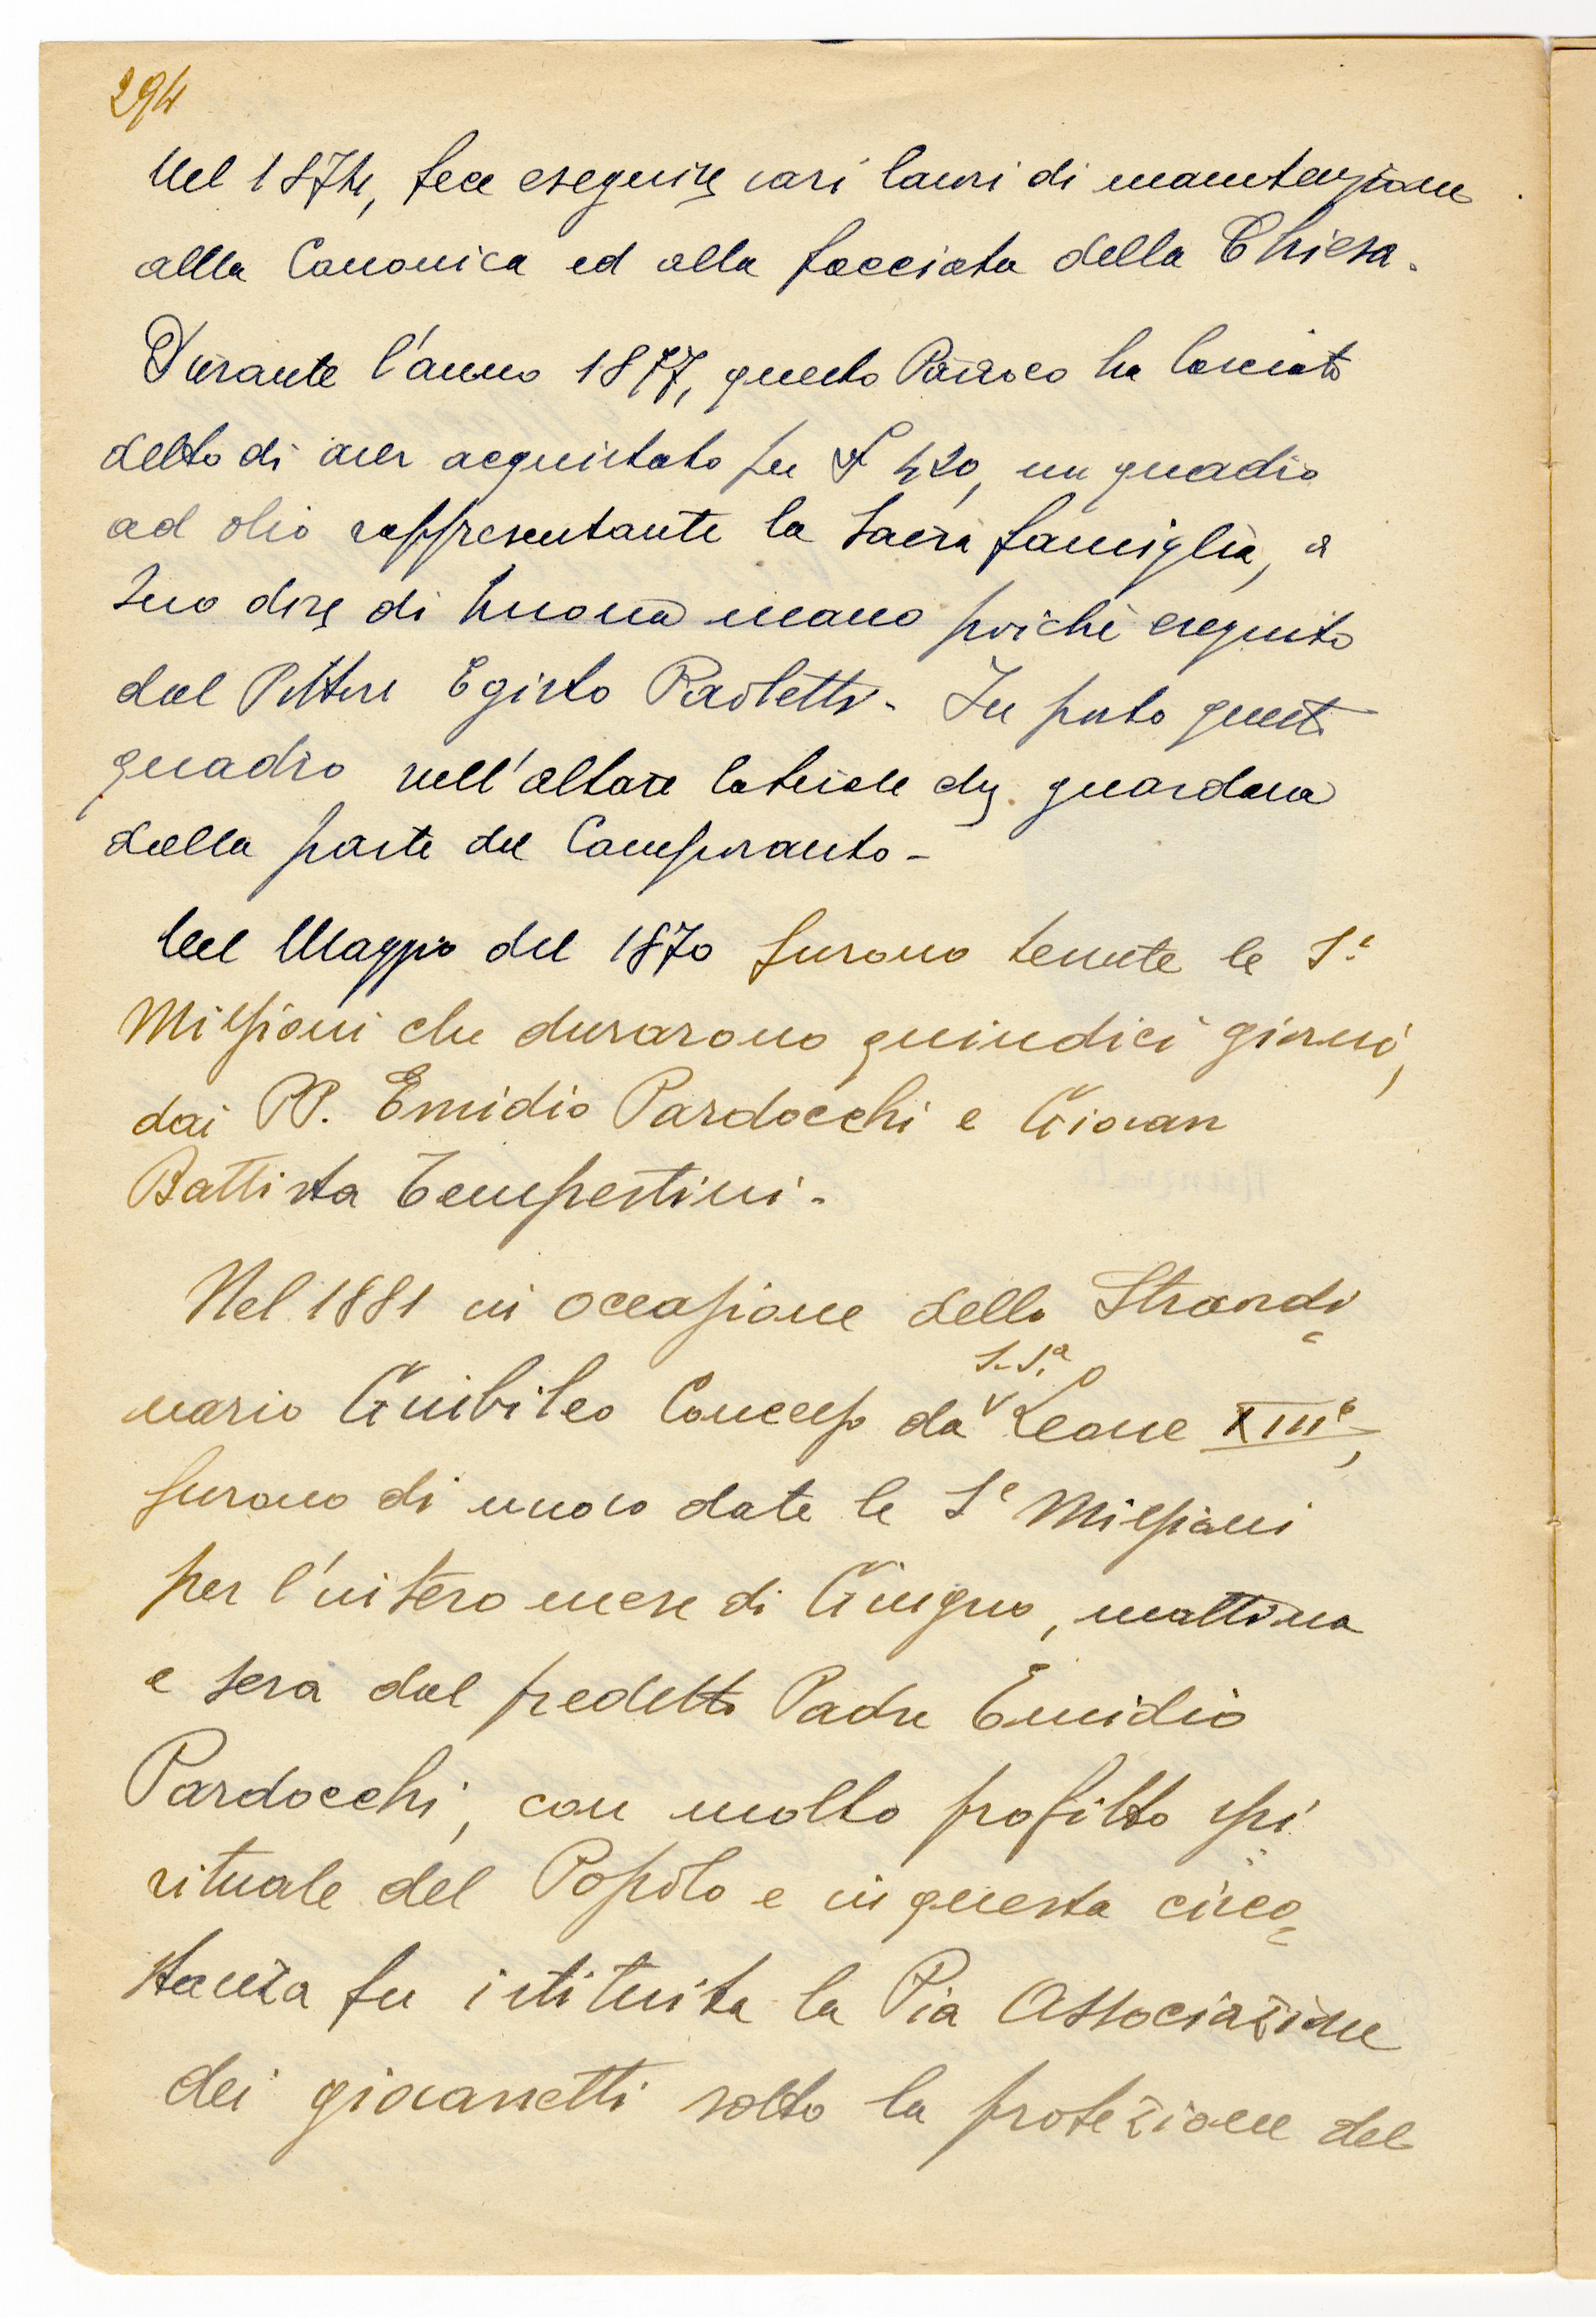 294
Nel 1874, fece eseguire vari lavori di manutenzione
alla Canonica ed alla facciata della Chiesa.
Durante l'anno 1877, questo Parroco ha lasciato
detto di aver acquistato per £ 420, un quadro
ad olio rappresentante la Sacra famiglia, a
suo dire di buona mano poichè eseguito
dal Pittore Egisto Paoletti - Fu posto questo
quadro nell'altare laterale che guardava
dalla parte del Camposanto -
Nel Maggio del 1870 furono tenute le S.e
Missioni che durarono quindici giorni,
dai PP. Emidio Pardocchi e Giovan
Battista Tempestini -
Nel 1881 in occasione dello Straordi
S. S.a
nario Giubileo Concesso da Leone XIII°,
furono di nuovo date le S.e Missioni
per l'intero mese di Giugno, mattina
e sera dal predetto Padre Emidio
Pardocchi, con molto profitto spi
rituale del Popolo e in questa circo
stanza fu istituita la Pia Associazione
dei giovanetti sotto la protezione del